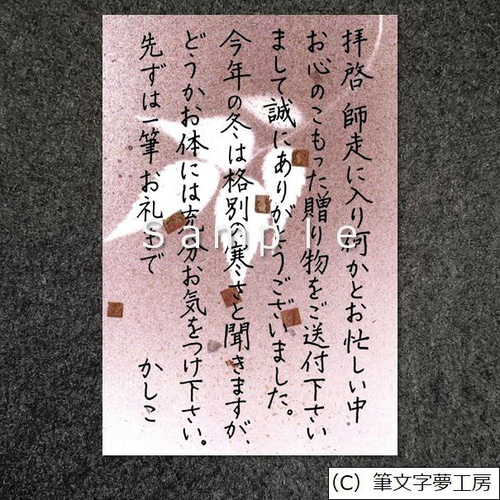 拝啓 師走に入り何かとお忙しい中
お心のこもった贈り物をご送付下さい
まして誠にありがとうございました。
今年の冬は格別の寒さと聞きますが、
どうかお体には充分お気をつけ下さい。
先ずは一筆お礼まで かしこ
sample
(C) 筆文字夢工房